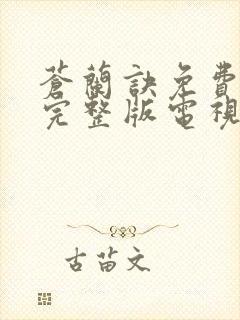 蒼蘭訣免費
完整版電視
古苗文